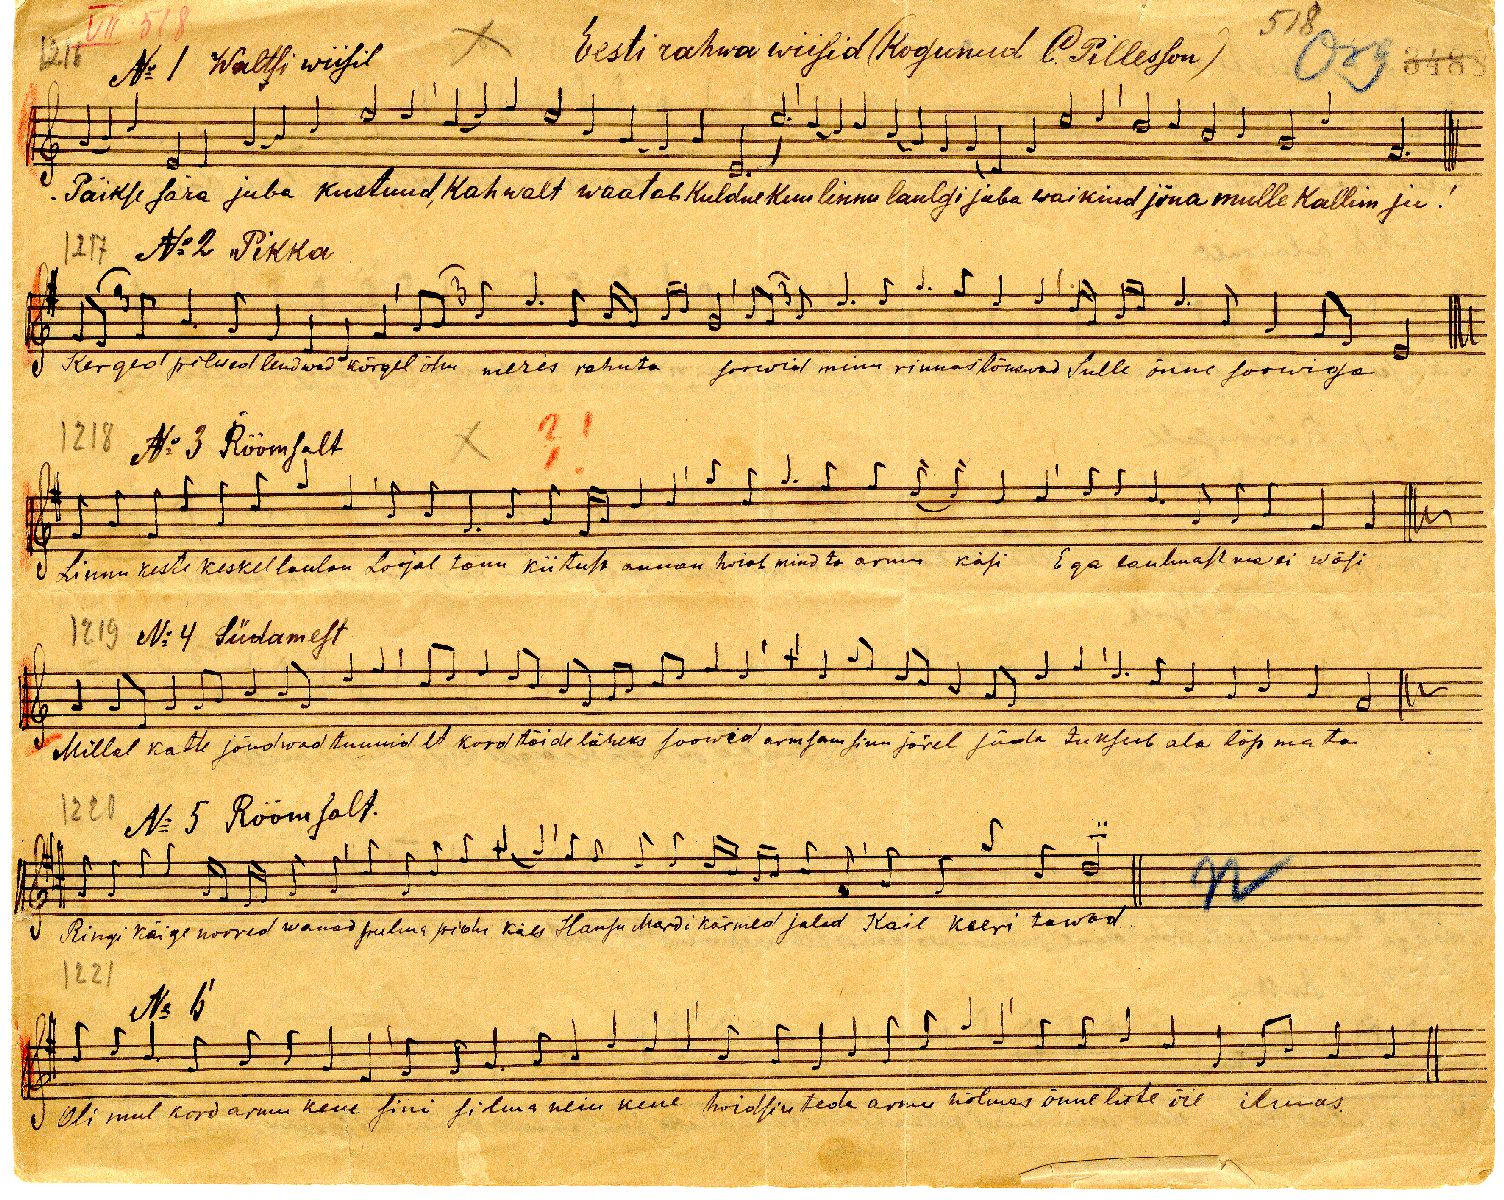 VII 518
518
1216 № 1 Waltsi wiisil Eesti rahwa wiisid (Kogunud C. Pillesson) Org 3488
Päikse sära juba kustund, Kahwalt waatab Kuldne Kuu linnu laulgi juba waikind jõua mulle Kallim ju!
1217 № 2 Pikka
Kerged pilwed lendwad kõrgel õhu meres rahuta soowid minu rinnas tõuswad Sulle õnne soowiga
1218 № 3 Röömsalt ?!
Linnu keste keskel laulan Loojal tänu kiitust annan hoiab mind ta armu käsi Ega laulmast ma ei wäsi
1219 № 4 Südamest
Millal katte jõudwad tunnid et kord täide läheks soowid armsam sinu järel süda tuksub ala lõpmata
1220 № 5 Röömsalt.
Ringi käige noored wanad pulma pidu käes Hansu Mardi kärmed jalad Kail keeri tawad
1221
№ 6
Oli mul kord armu kene sini silma neiu kene hoidsin teda armu hõlmas õnneliste õie ilmas.